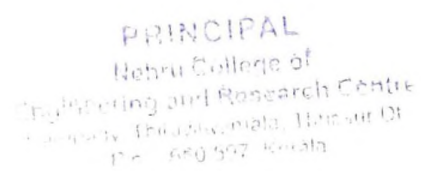 PRINCIPAL
Nehru College of
Engineering and Research Centre
Thiruvilwamala, Thrissur Dt
Pin 680 597 Kerala